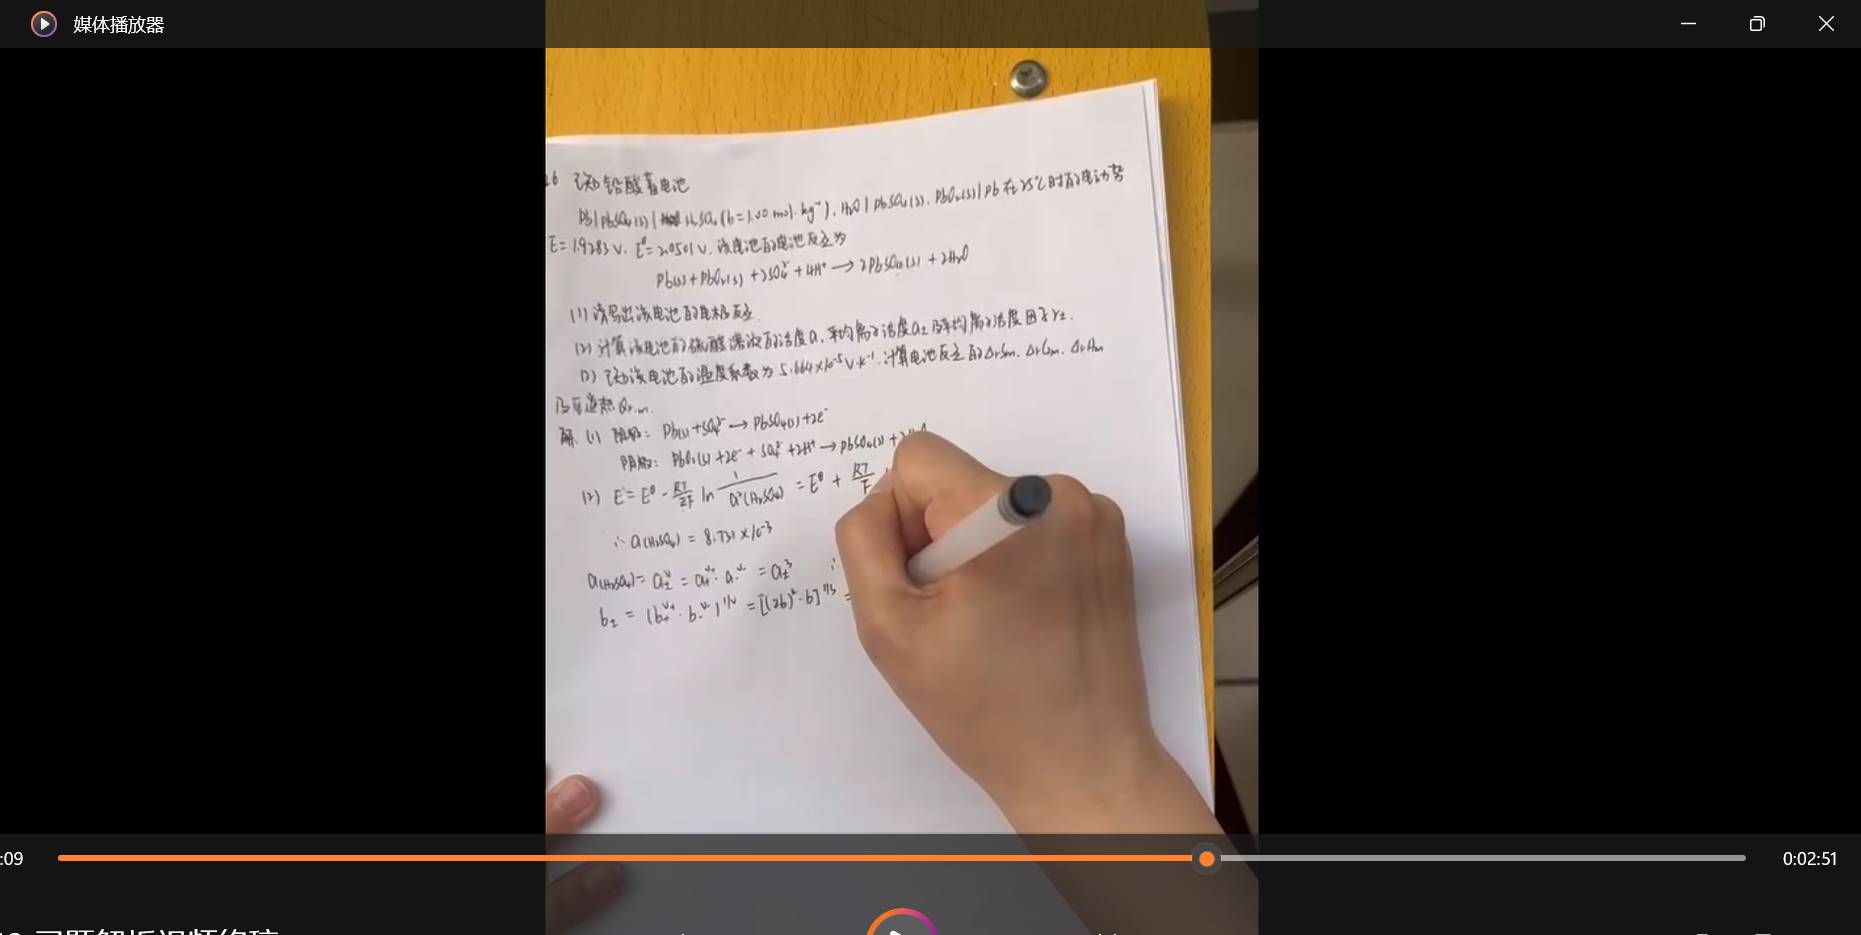 媒体播放器
26 已知铅酸蓄电池
Pb|PbSO₄(s)|H₂SO₄(b=1.00 mol·kg⁻¹), H₂O|PbSO₄(s), PbO₂(s)|Pb 在25℃时的电动势
E=1.9283V. E^θ=2.0501V. 该电池的电池反应为
Pb(s)+PbO₂(s)+2SO₄²⁻+4H⁺→2PbSO₄(s)+2H₂O
(1) 请写出该电池的电极反应.
(2) 计算该电池的硫酸溶液的活度a. 平均离子活度a± 及平均离子活度因子γ±.
(3) 已知该电池的温度系数为 5.664×10⁻⁵V·K⁻¹. 计算电池反应的ΔrSm. ΔrGm. ΔrHm
及可逆热Qr.m.
解. (1) 阳极: Pb(s)+SO₄²⁻→PbSO₄(s)+2e⁻
阴极: PbO₂(s)+2e⁻+SO₄²⁻+2H⁺→PbSO₄(s)+
(2) E=E^θ-RT/zF ln 1/a²(H₂SO₄) =E^θ+RT/F
∴a(H₂SO₄)=8.731×10⁻³
a(H₂SO₄)=a±^ν=a₊^ν₊·a₋^ν₋=a±³ ∴
b±=(b₊^ν₊·b₋^ν₋)^1/ν=[(2b)²·b]^1/3=
:09
0:02:51